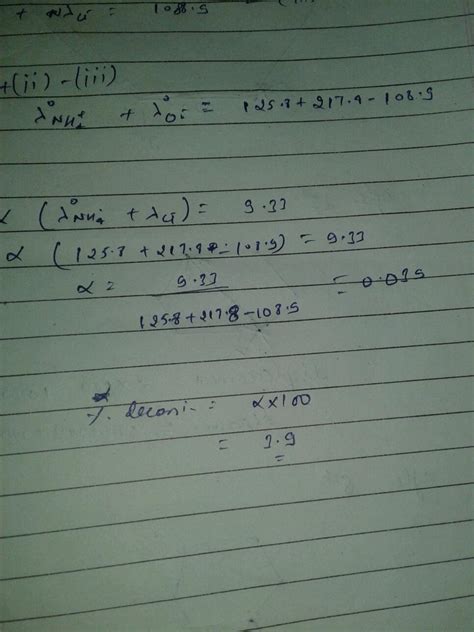 + λCl⁻ = 108.9
+(ii) - (iii)
λ°NH₄⁺ + λ°Cl⁻ = 125.8 + 217.8 - 108.9
α (λ°NH₄⁺ + λCl⁻) = 9.33
α (125.8 + 217.8 - 108.9) = 9.33
α = 9.33 / 125.8 + 217.8 - 108.9 = 0.039
α × 100
= 3.9